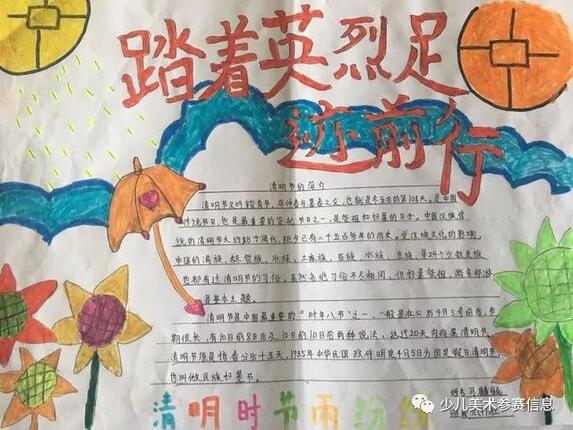 踏着英烈足
迹前行
清明节的简介
清明节又叫踏青节,在仲春与暮春之交,也就是冬至后的第108天。是中国
传统节日,也是最重要的祭祀节日之一,是祭祖和扫墓的日子。中国汉族传
统的清明节大约始于周代,距今已有二千五百多年的历史。受汉族文化的影响,
中国的满族、赫哲族、壮族、土家族、苗族、水族、京族、等24个少数民族
也都有过清明节的习俗。虽然各地习俗不尽相同,但扫墓祭祖、踏青郊游
是基本主题。
清明节是中国最重要的“时年八节”之一,一般是在公历4月5号前后,节
期很长,有10日前8日后及10日前10日后两种说法,这近20天内均属清明节。
清明节原是指春分后十五天,1935年中华民国政府明定4月5日为国定假日清明节,
也叫做民族扫墓节。
清明时节雨纷纷
姓名
班级
少儿美术参赛信息